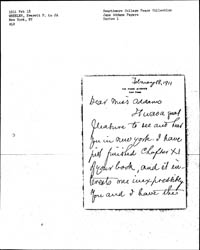 1911 Feb 18
WHEELER, Everett P. to JA
New York, NY
ALS
Swarthmore College Peace Collection
Jane Addams Papers
Series 1
February 18, 1911
Dear Miss Addams
It was a great
pleasure to see and hear
you in New York. I have
just finished Chapter XI
of your book, and it in-
terests me inexpressibly
You and I have this